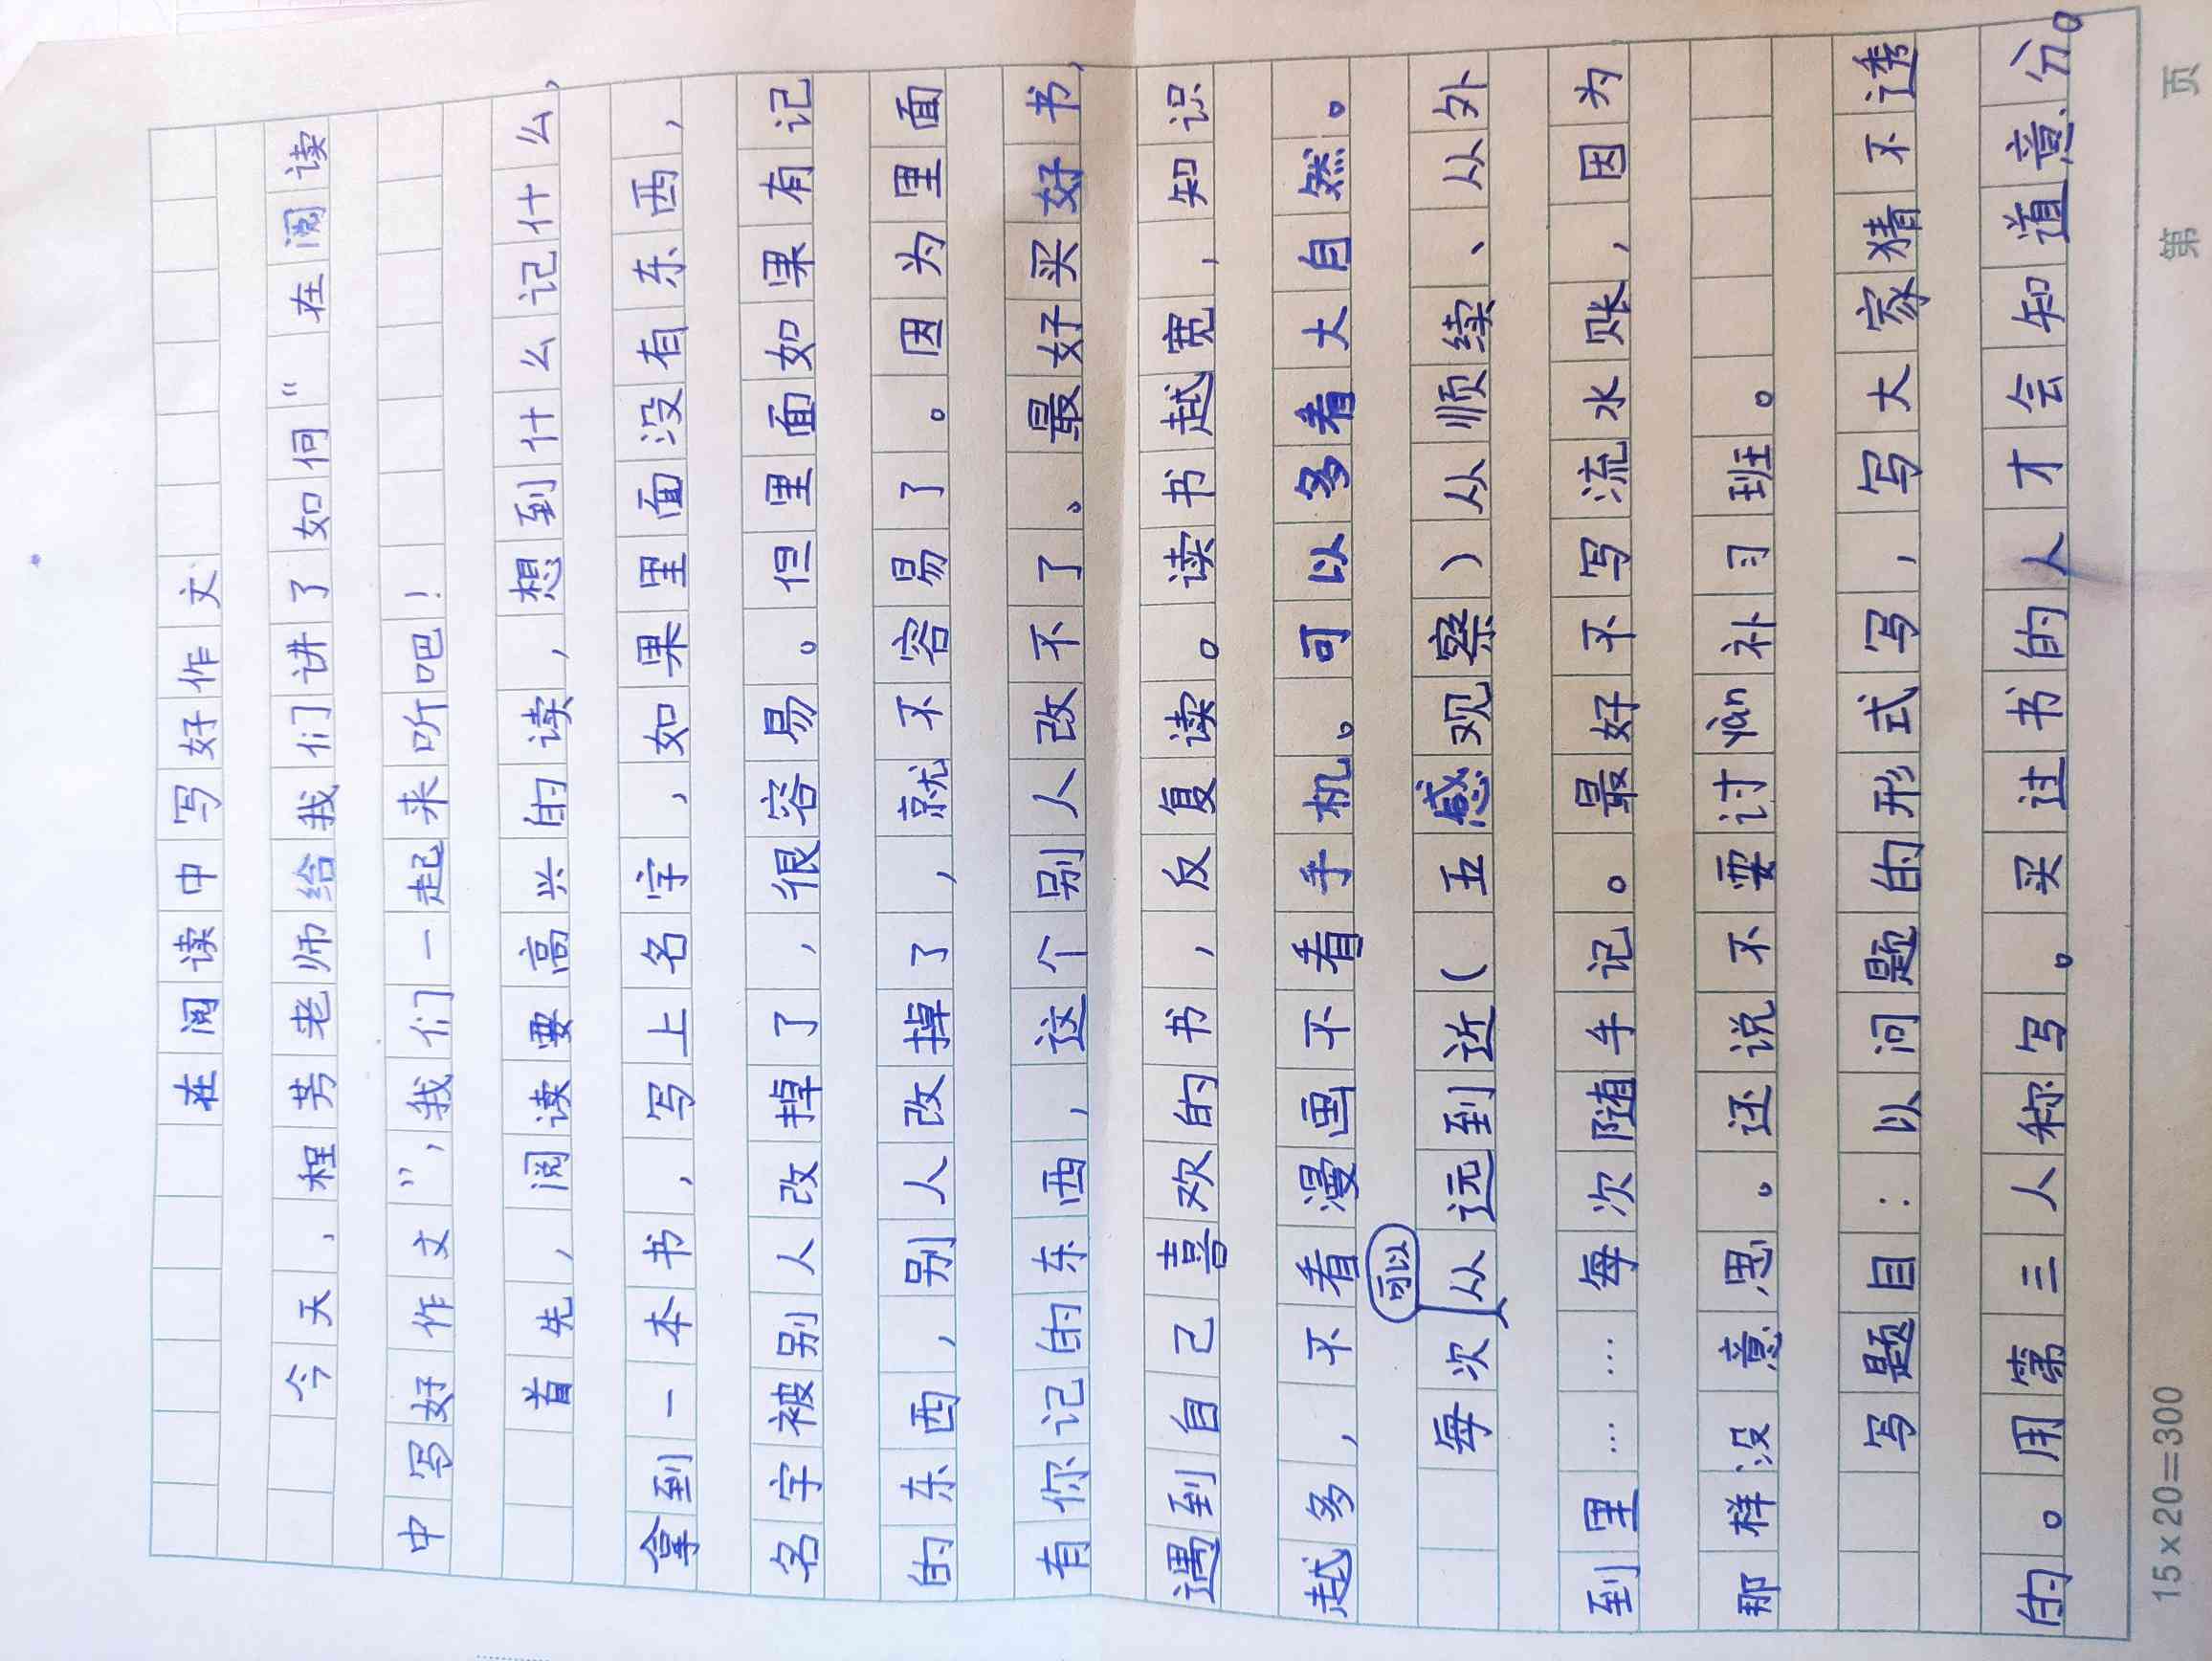 在阅读中写好作文
今天，程芳老师给我们讲了如何“在阅读
中写好作文”，我们一起来听吧！
首先，阅读要高兴的读，想到什么记什么，
拿到一本书，写上名字，如果里面没有东西，
名字被别人改掉了，很容易。但里面如果有记
的东西，别人改掉了，就不容易了。因为里面
有你记的东西，这个别人改不了。最好买好书，
遇到自己喜欢的书，反复读。读书越宽，知识
越多，不看漫画不看手机。可以多看大自然。
每次可以从远到近（五感观察）从顺续、从外
到里……每次随手记。最好不写流水账，因为
那样没意思。还说不要讨yàn补习班。
写题目：以问题的形式写，写大家猜不透
的。用第三人称写。买过书的人才会知道意、分。
15×20=300
第 页